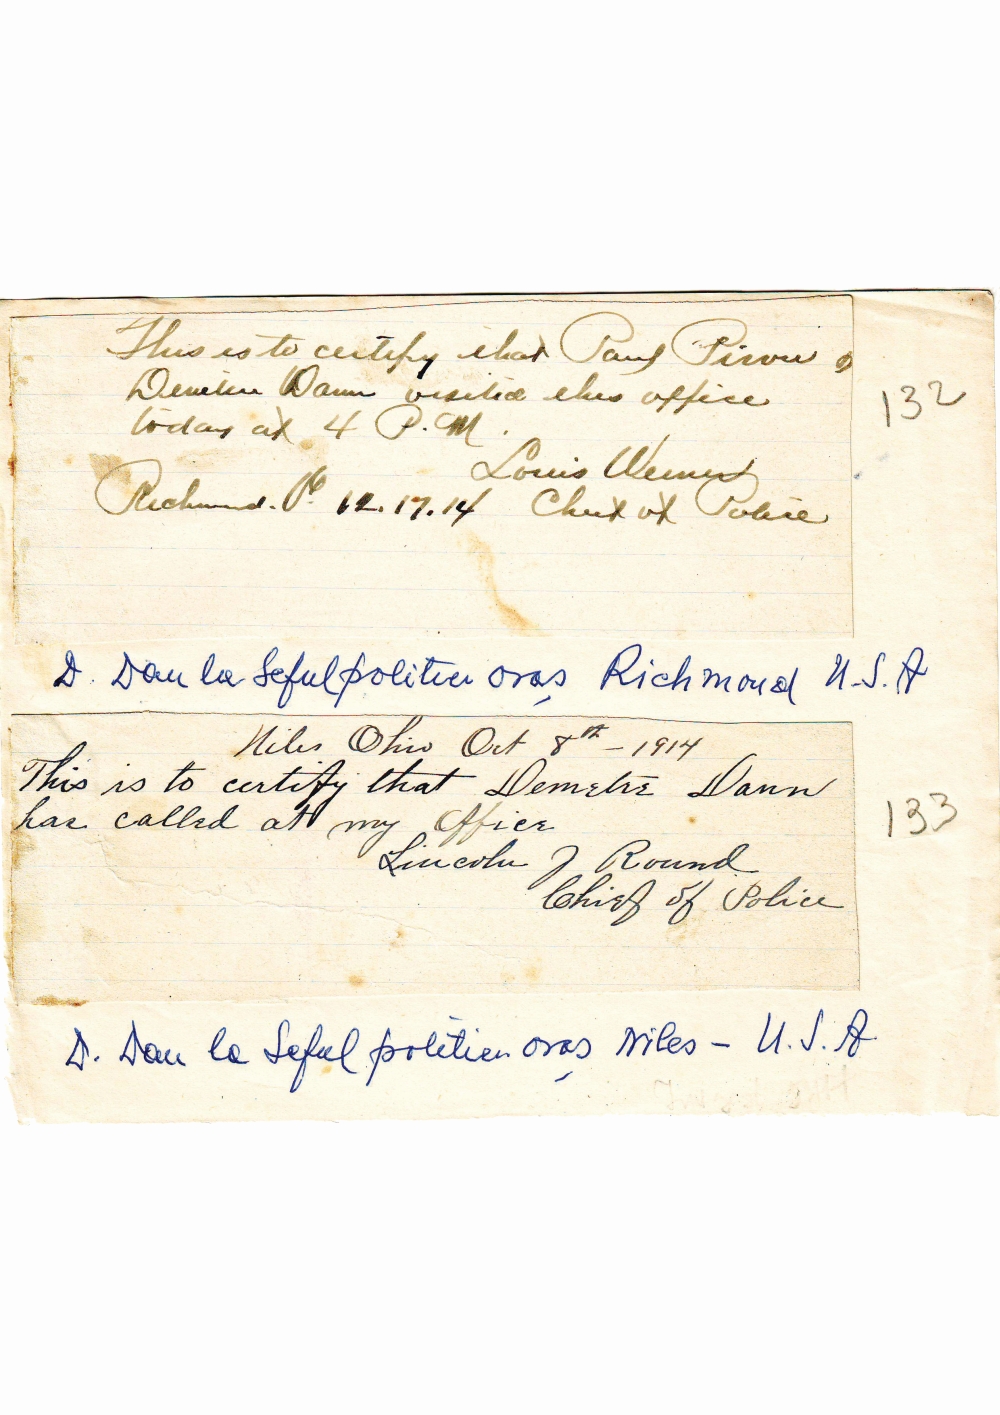 This is to certify that Paul Pirvu &
Demetru Dann visited this office
today at 4 P.M.
Louis Werner
Richmond. Va 12.17.14 Chief of Police
132
D. Dan la Seful politiei oraș Richmond U.S.A
Niles Ohio Oct 8th - 1914
This is to certify that Demetre Dann
has called at my office
133
Lincoln J Round
Chief of Police
D. Dan la Seful politiei oraș Niles - U.S.A.